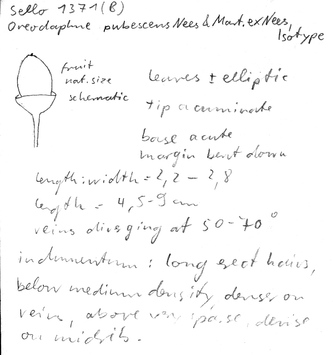 Sello 1371(B)
Oreodaphne pubescens Nees & Mart. ex Nees,
Isotype
fruit
nat. size
schematic
leaves ± elliptic
tip acuminate
base acute
margin bent down
length:width = 2,2 - 2,8
length = 4,5-9 cm
veins diverging at 50-70°
indumentum: long erect hairs,
below medium density, denser on
veins, above very sparse, dense
on midrib.